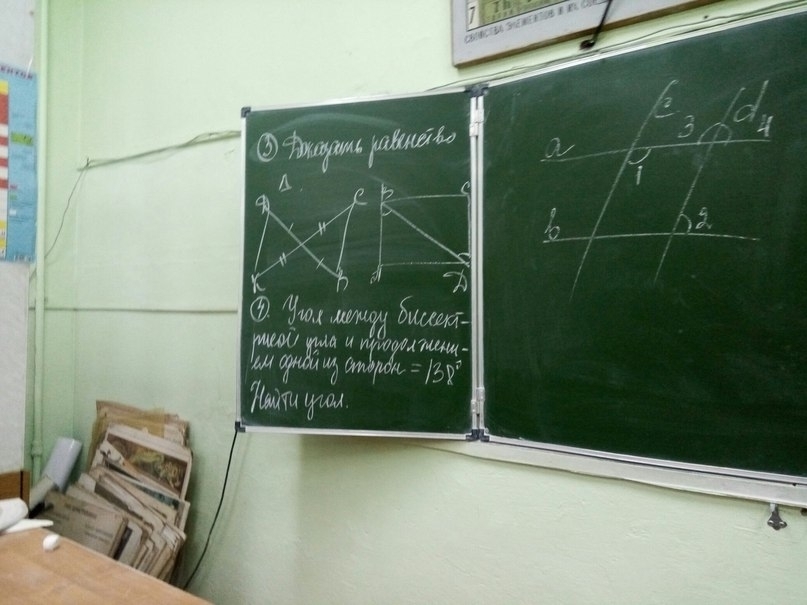 СВОЙСТВА ЭЛЕМЕНТОВ И ИХ СОЕ
7
③ Доказать равенство
Δ.
C
B
K
A
D
④. Угол между биссект-
рисой угла и продолжени-
ем одной из сторон = 138°
Найти угол.
c
d
a
3
4
1
b
2